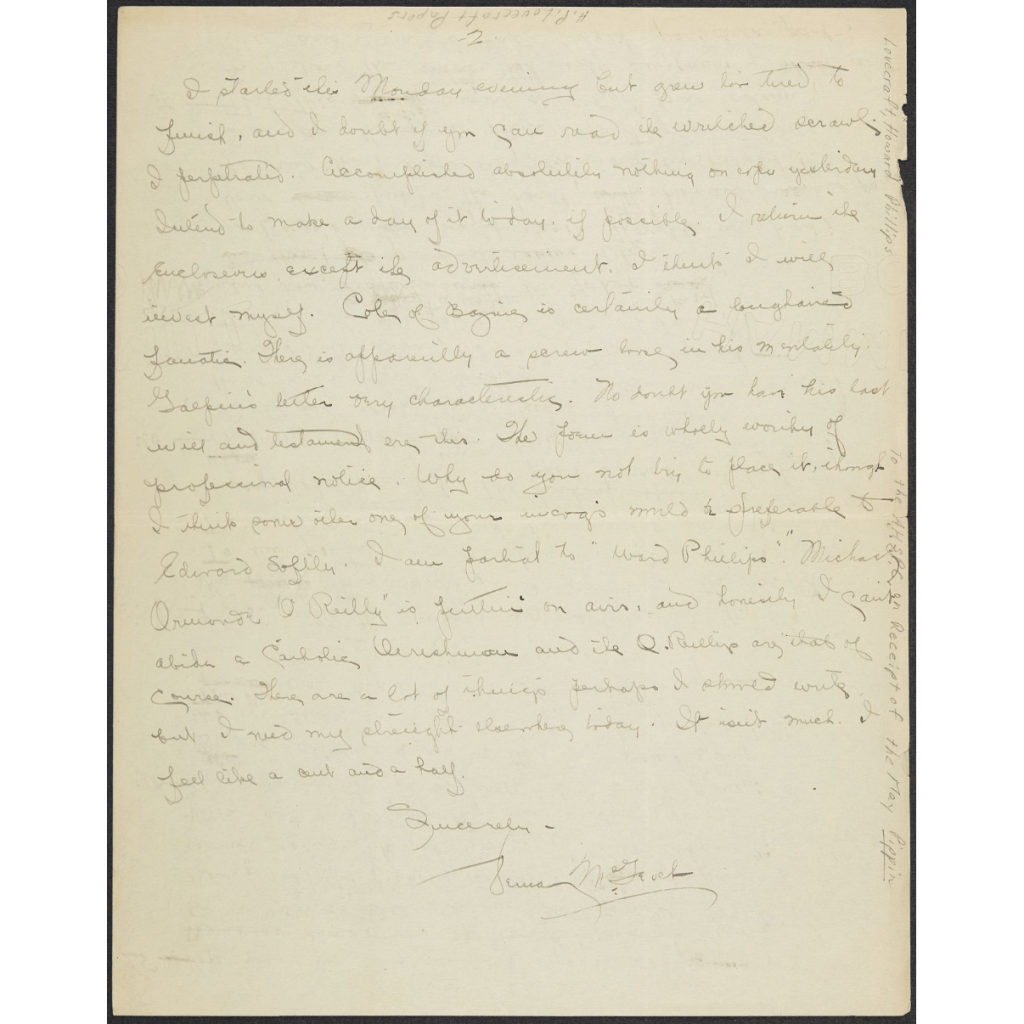 H.P. Lovecraft Papers
-2
I started this Monday evening but grew too tired to
finish, and I doubt if you can read the wretched scrawl
I perpetrated. Accomplished absolutely nothing on yesterday
Intend to make a day of it today, if possible. I return the
enclosures except the advertisement. I think I will
invest myself. Cole of Bazine is certainly a longhaired
fanatic. There is apparently a screw loose in his mentality.
Galpin's letter very characteristic. No doubt you have his last
will and testament ere this. The poem is wholly worthy of
professional notice. Why do you not try to place it, though
I think some other one of your incogs would be preferable to
Edward Softly. I am partial to "Ward Phillips". Michael
Ormonde O'Reilly" is further on, and honestly I can't
abide a Catholic Irishman and the O'Reillys are that of
course. There are a lot of things perhaps I should write
but I need my strength elsewhere today. It isn't much. I
feel like a cent and a half.
Sincerely -
McGeoch
Lovecraft, Howard Phillips
To the A.H.S.P.C. on Receipt of the May Pippin